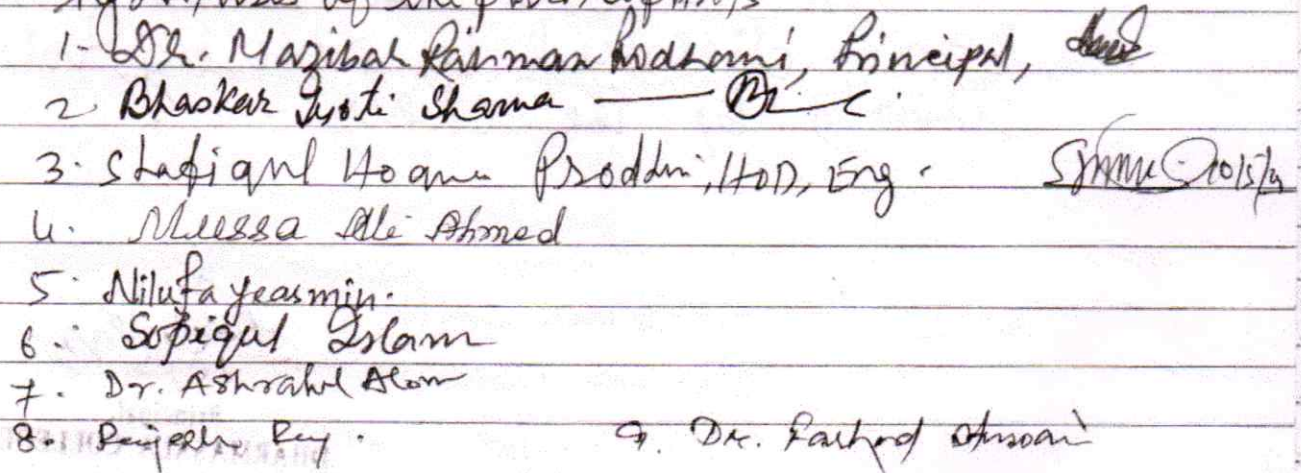 Signatures of the participants
1- Dr. Mazibar Rahman Prodhani, Principal,
2 Bhaskar Jyoti Sharma
3. Shafiqul Hoque Proddhni, HOD, Eng. 10/5/21
4. Mussa Ali Ahmed
5. Nilufa yeasmin.
6. Sopiqul Islam
7. Dr. Ashraful Alom
8. Rajesh Ray. 9. Dr. Farhad Ansari